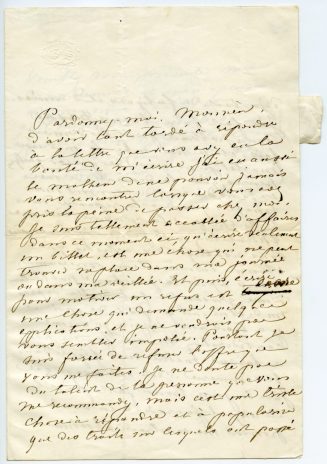 Pardonnez-moi, Monsieur,
d'avoir tant tardé à répondre
à la lettre que vous avez eu la
bonté de m'écrire. J'ai eu aussi
le malheur de ne pouvoir jamais
vous rencontrer lorsque vous avez
pris la peine de passer chez moi.
Je suis tellement accablée d'affaires
dans ce moment ci, qu'écrire seulement
un billet, est une chose qui ne peut
trouver sa place dans ma journée
ou dans ma veillée. Et puis, écrire
pour motiver un refus est
une chose qui demande quelques
explications, et je ne voudrais pas
vous sembler impolie. Pourtant je
suis forcée de refuser l'offre que
vous me faites. Je ne doute pas
du talent de la personne que vous
me recommandez, mais c'est une triste
chose à répandre et à populariser
que des traits sur lesquels ont passé